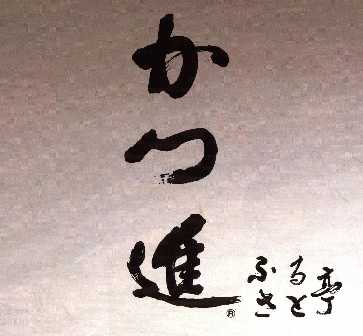 かつ進
ふるさと亭